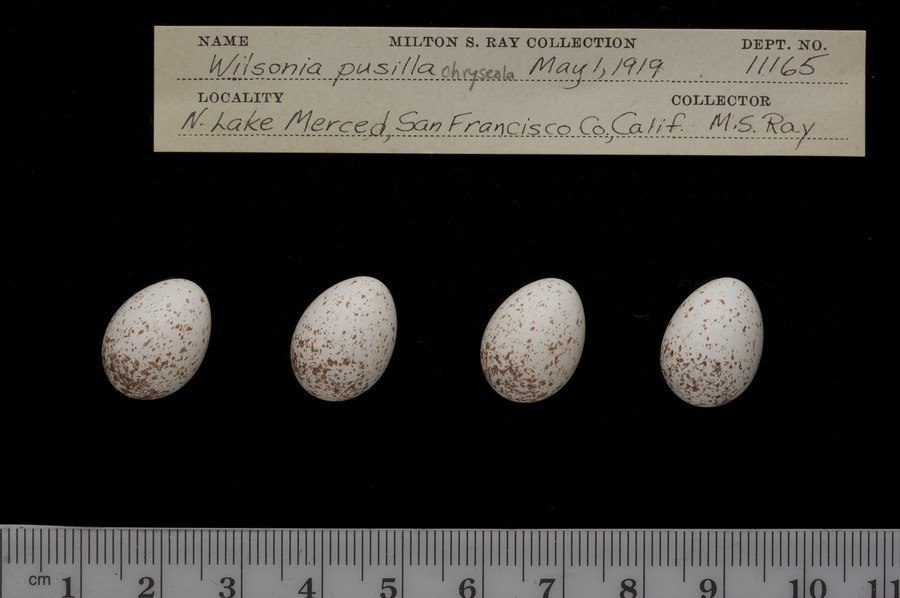 NAME MILTON S. RAY COLLECTION DEPT. NO.
Wilsonia pusilla chryseola May 1, 1919 11165
LOCALITY COLLECTOR
N. Lake Merced, San Francisco Co., Calif. M.S. Ray
cm 1 2 3 4 5 6 7 8 9 10 11